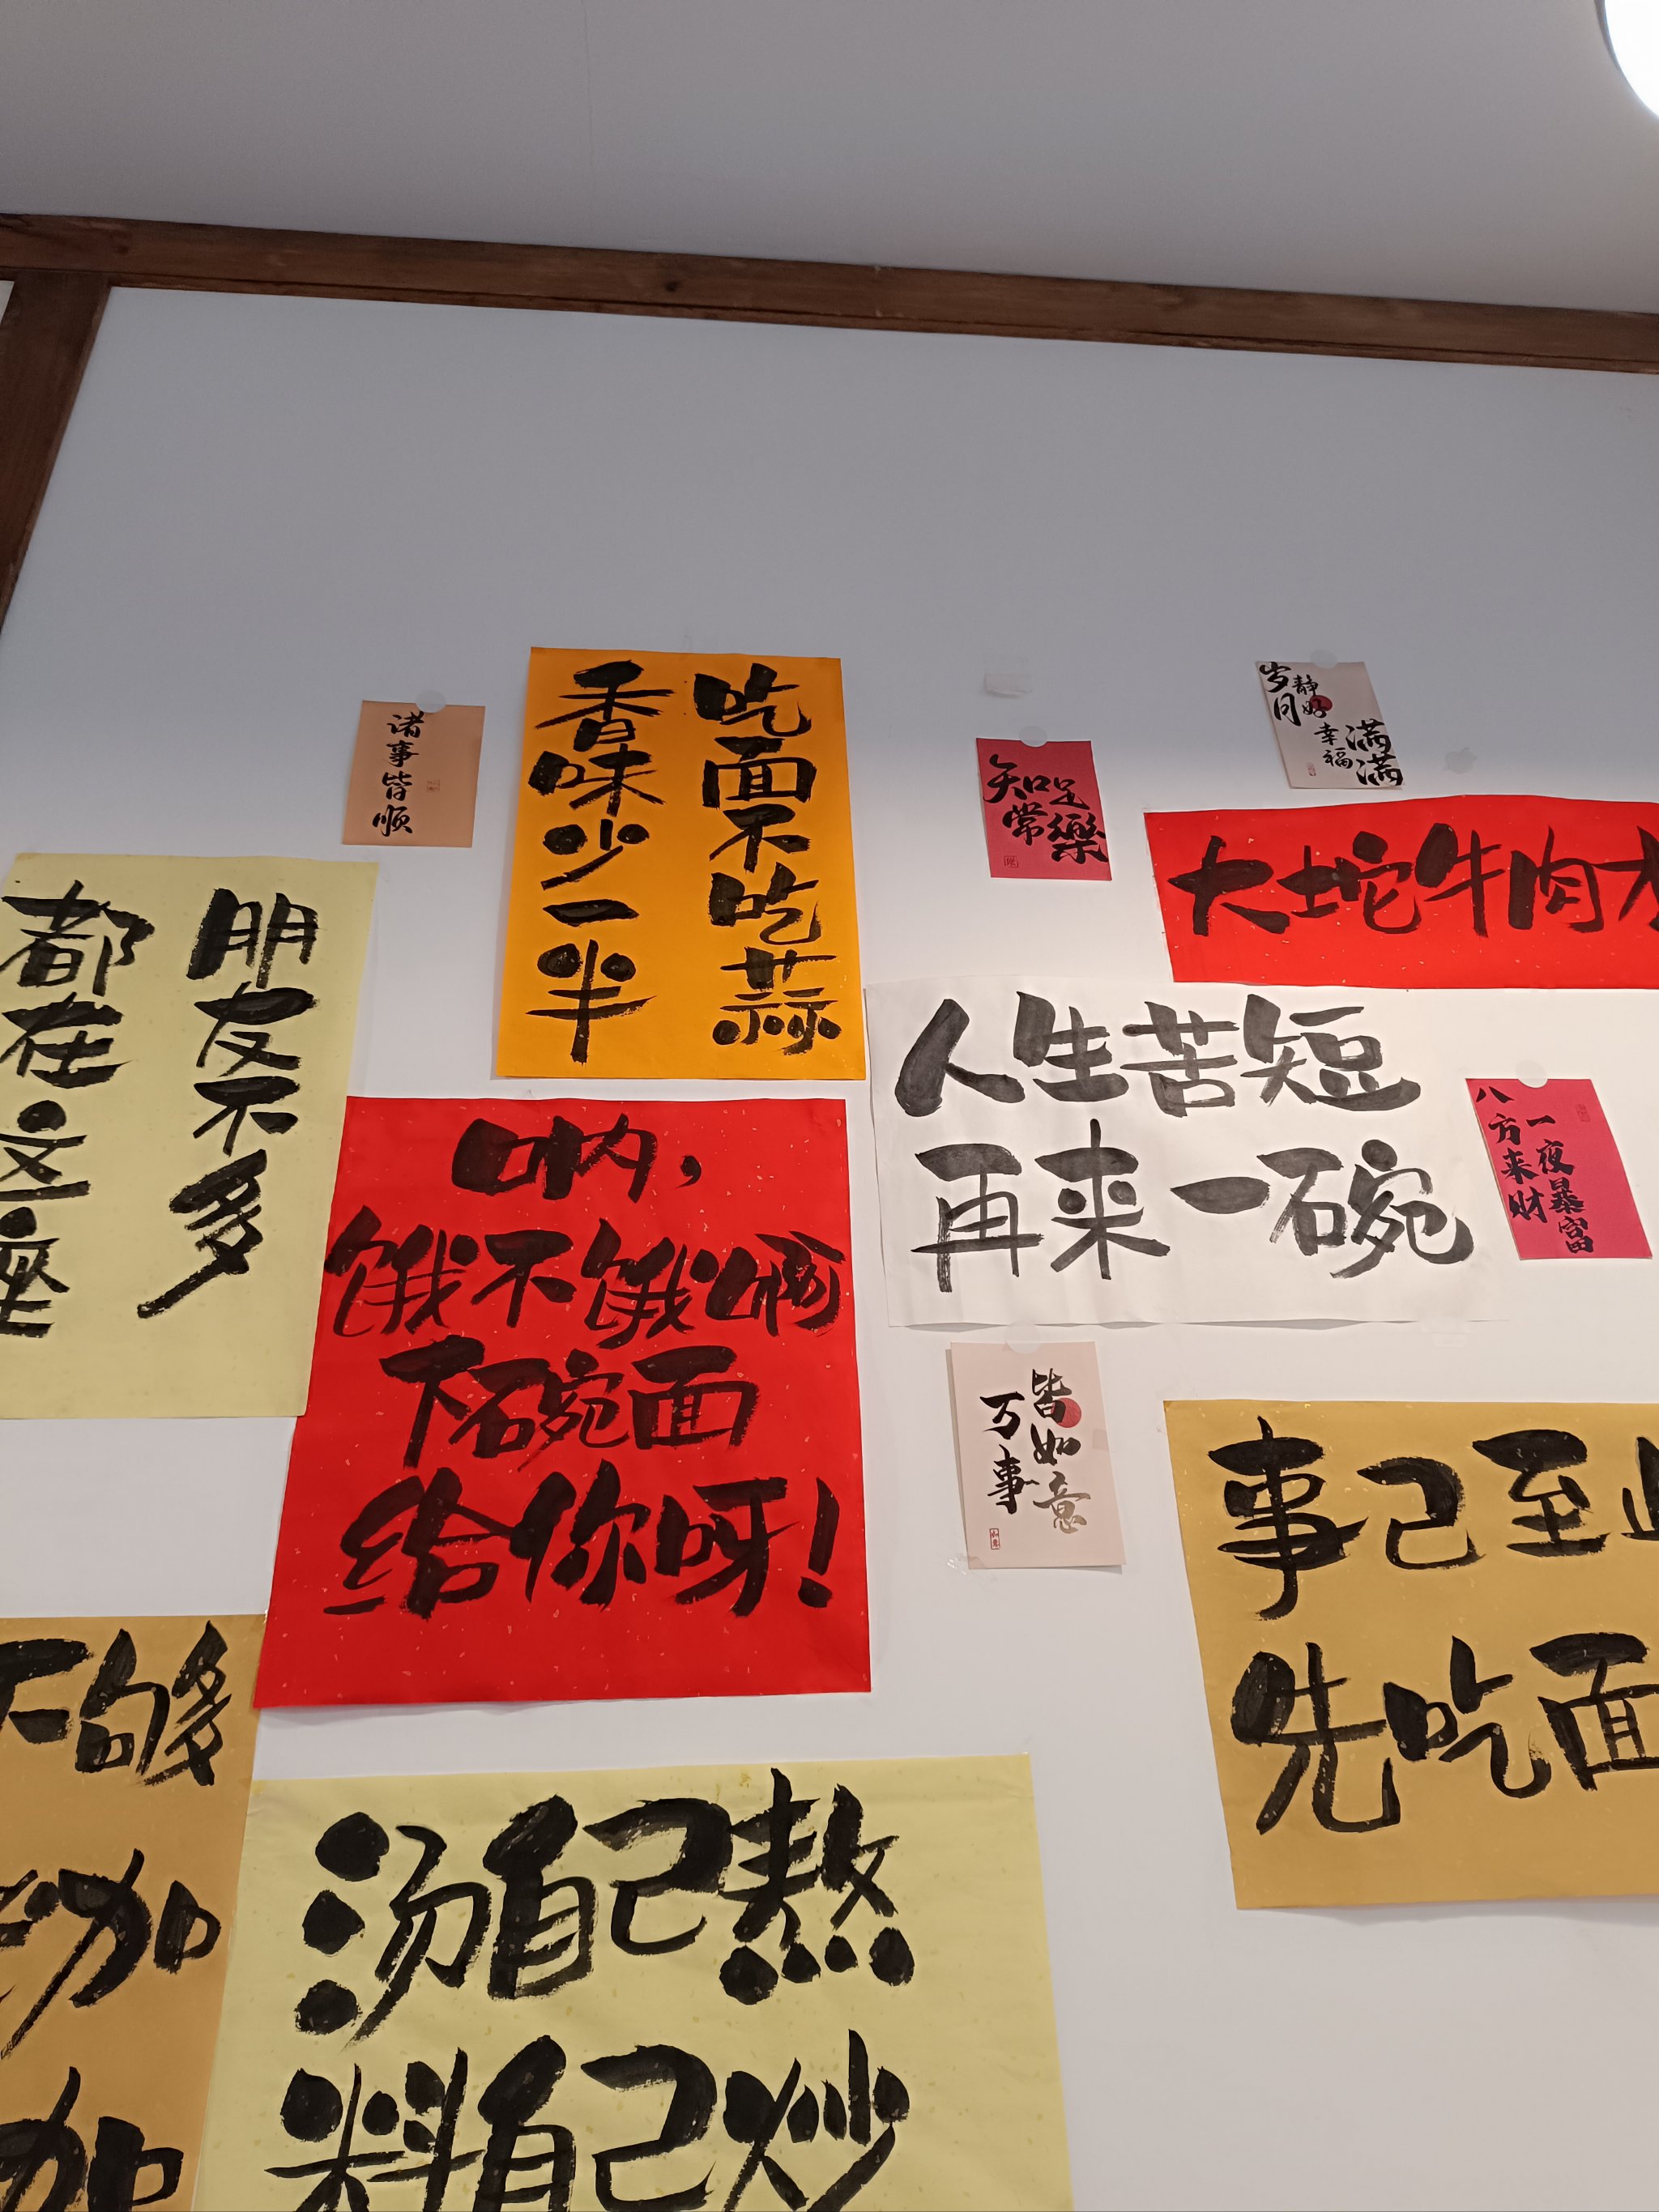 诸事皆顺
吃面不吃蒜
香味少一半
知足
常樂
岁月
静好
幸福
满满
大坨牛肉
朋友不多
都在这座
人生苦短
再来一碗
八方来财
一夜暴富
呐，
饿不饿啊
下碗面
给你呀！
万事
皆如意
事已至
先吃面
不够
加
加
汤自己熬
料自己炒